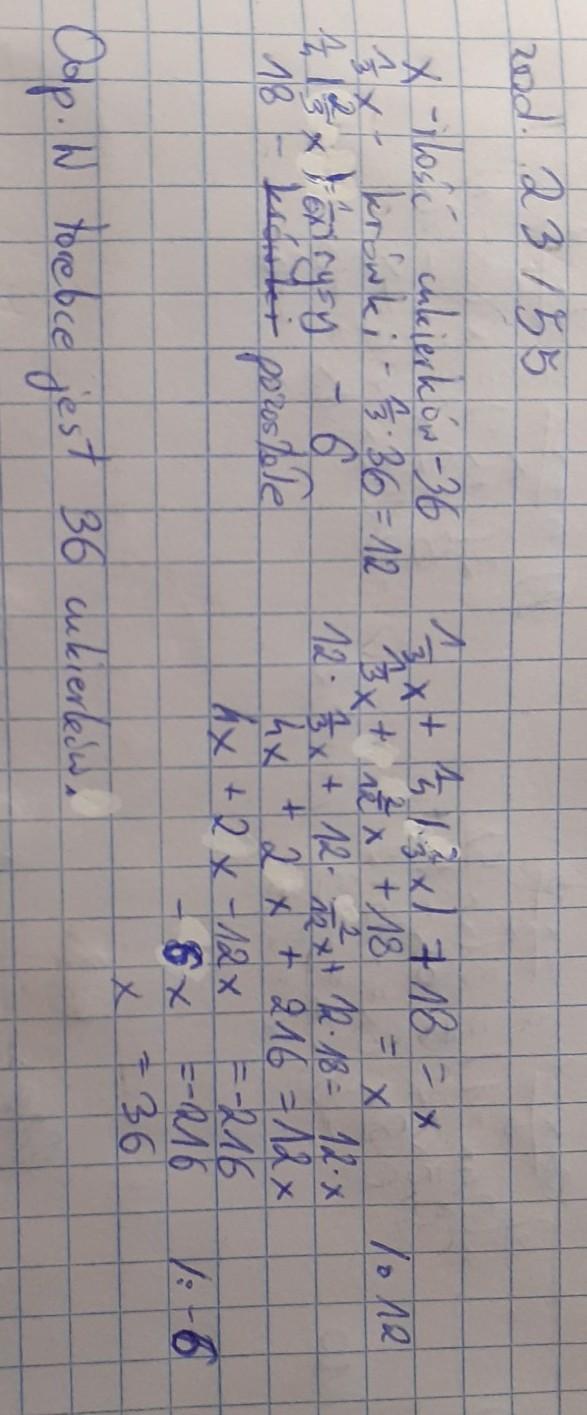 zad. 23/55
x - ilość cukierków - 36
1/3 x - krówki - 1/3 · 36 = 12
1/4 (2/3 x) = - 6
18 - krówki pozostałe
1/3 x + 1/4 (2/3 x) + 18 = x
1/3 x + 2/12 x + 18 = x /· 12
12 · 1/3 x + 12 · 2/12 x + 12 · 18 = 12 · x
4x + 2x + 216 = 12x
4x + 2x - 12x = -216
-6x = -216 /: -6
x = 36
Odp. W torebce jest 36 cukierków.